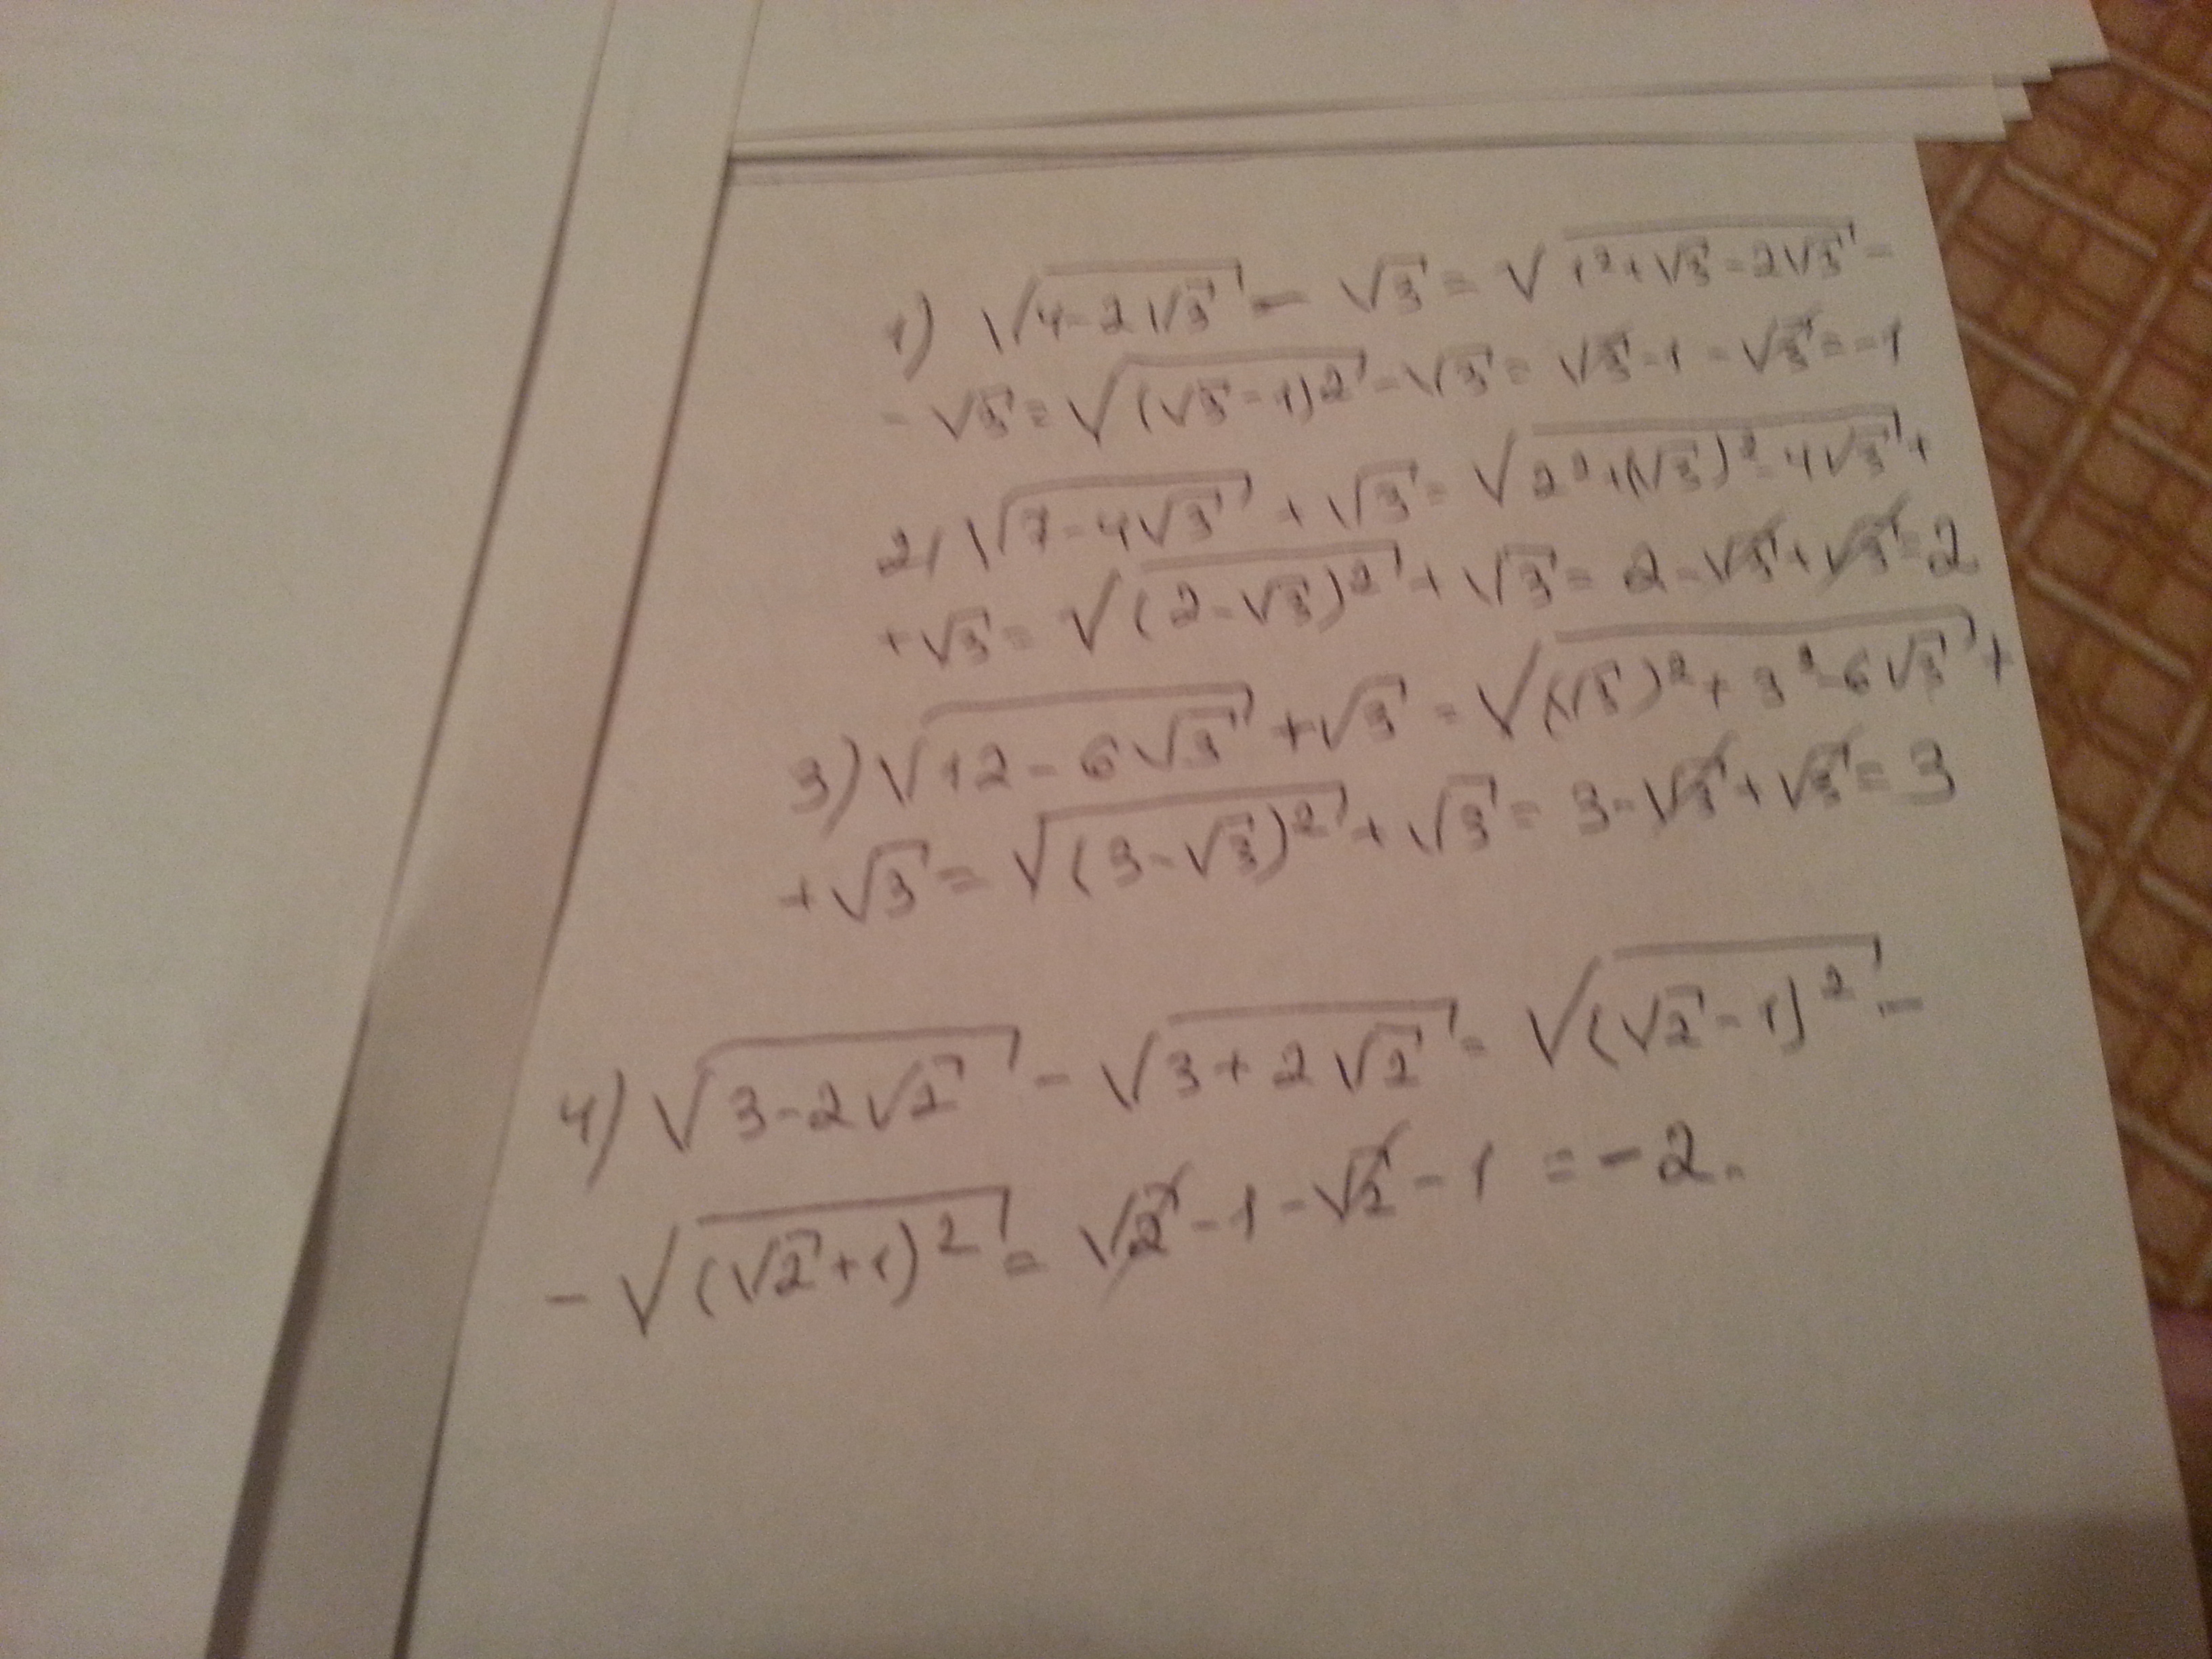 1) √(4-2√3) - √3 = √(1²+√3-2√3) -
- √3 = √((√3-1)2) - √3 = √3-1-√3 = -1
2) √(7-4√3) + √3 = √(2²+(√3)²-4√3) +
+√3 = √((2-√3)²) + √3 = 2-√3+√3 = 2
3) √(12-6√3) + √3 = √((√3)²+3²-6√3) +
+√3 = √((3-√3)²) + √3 = 3-√3+√3 = 3
4) √(3-2√2) - √(3+2√2) = √((√2-1)²) -
- √((√2+1)²) = √2-1-√2-1 = -2.